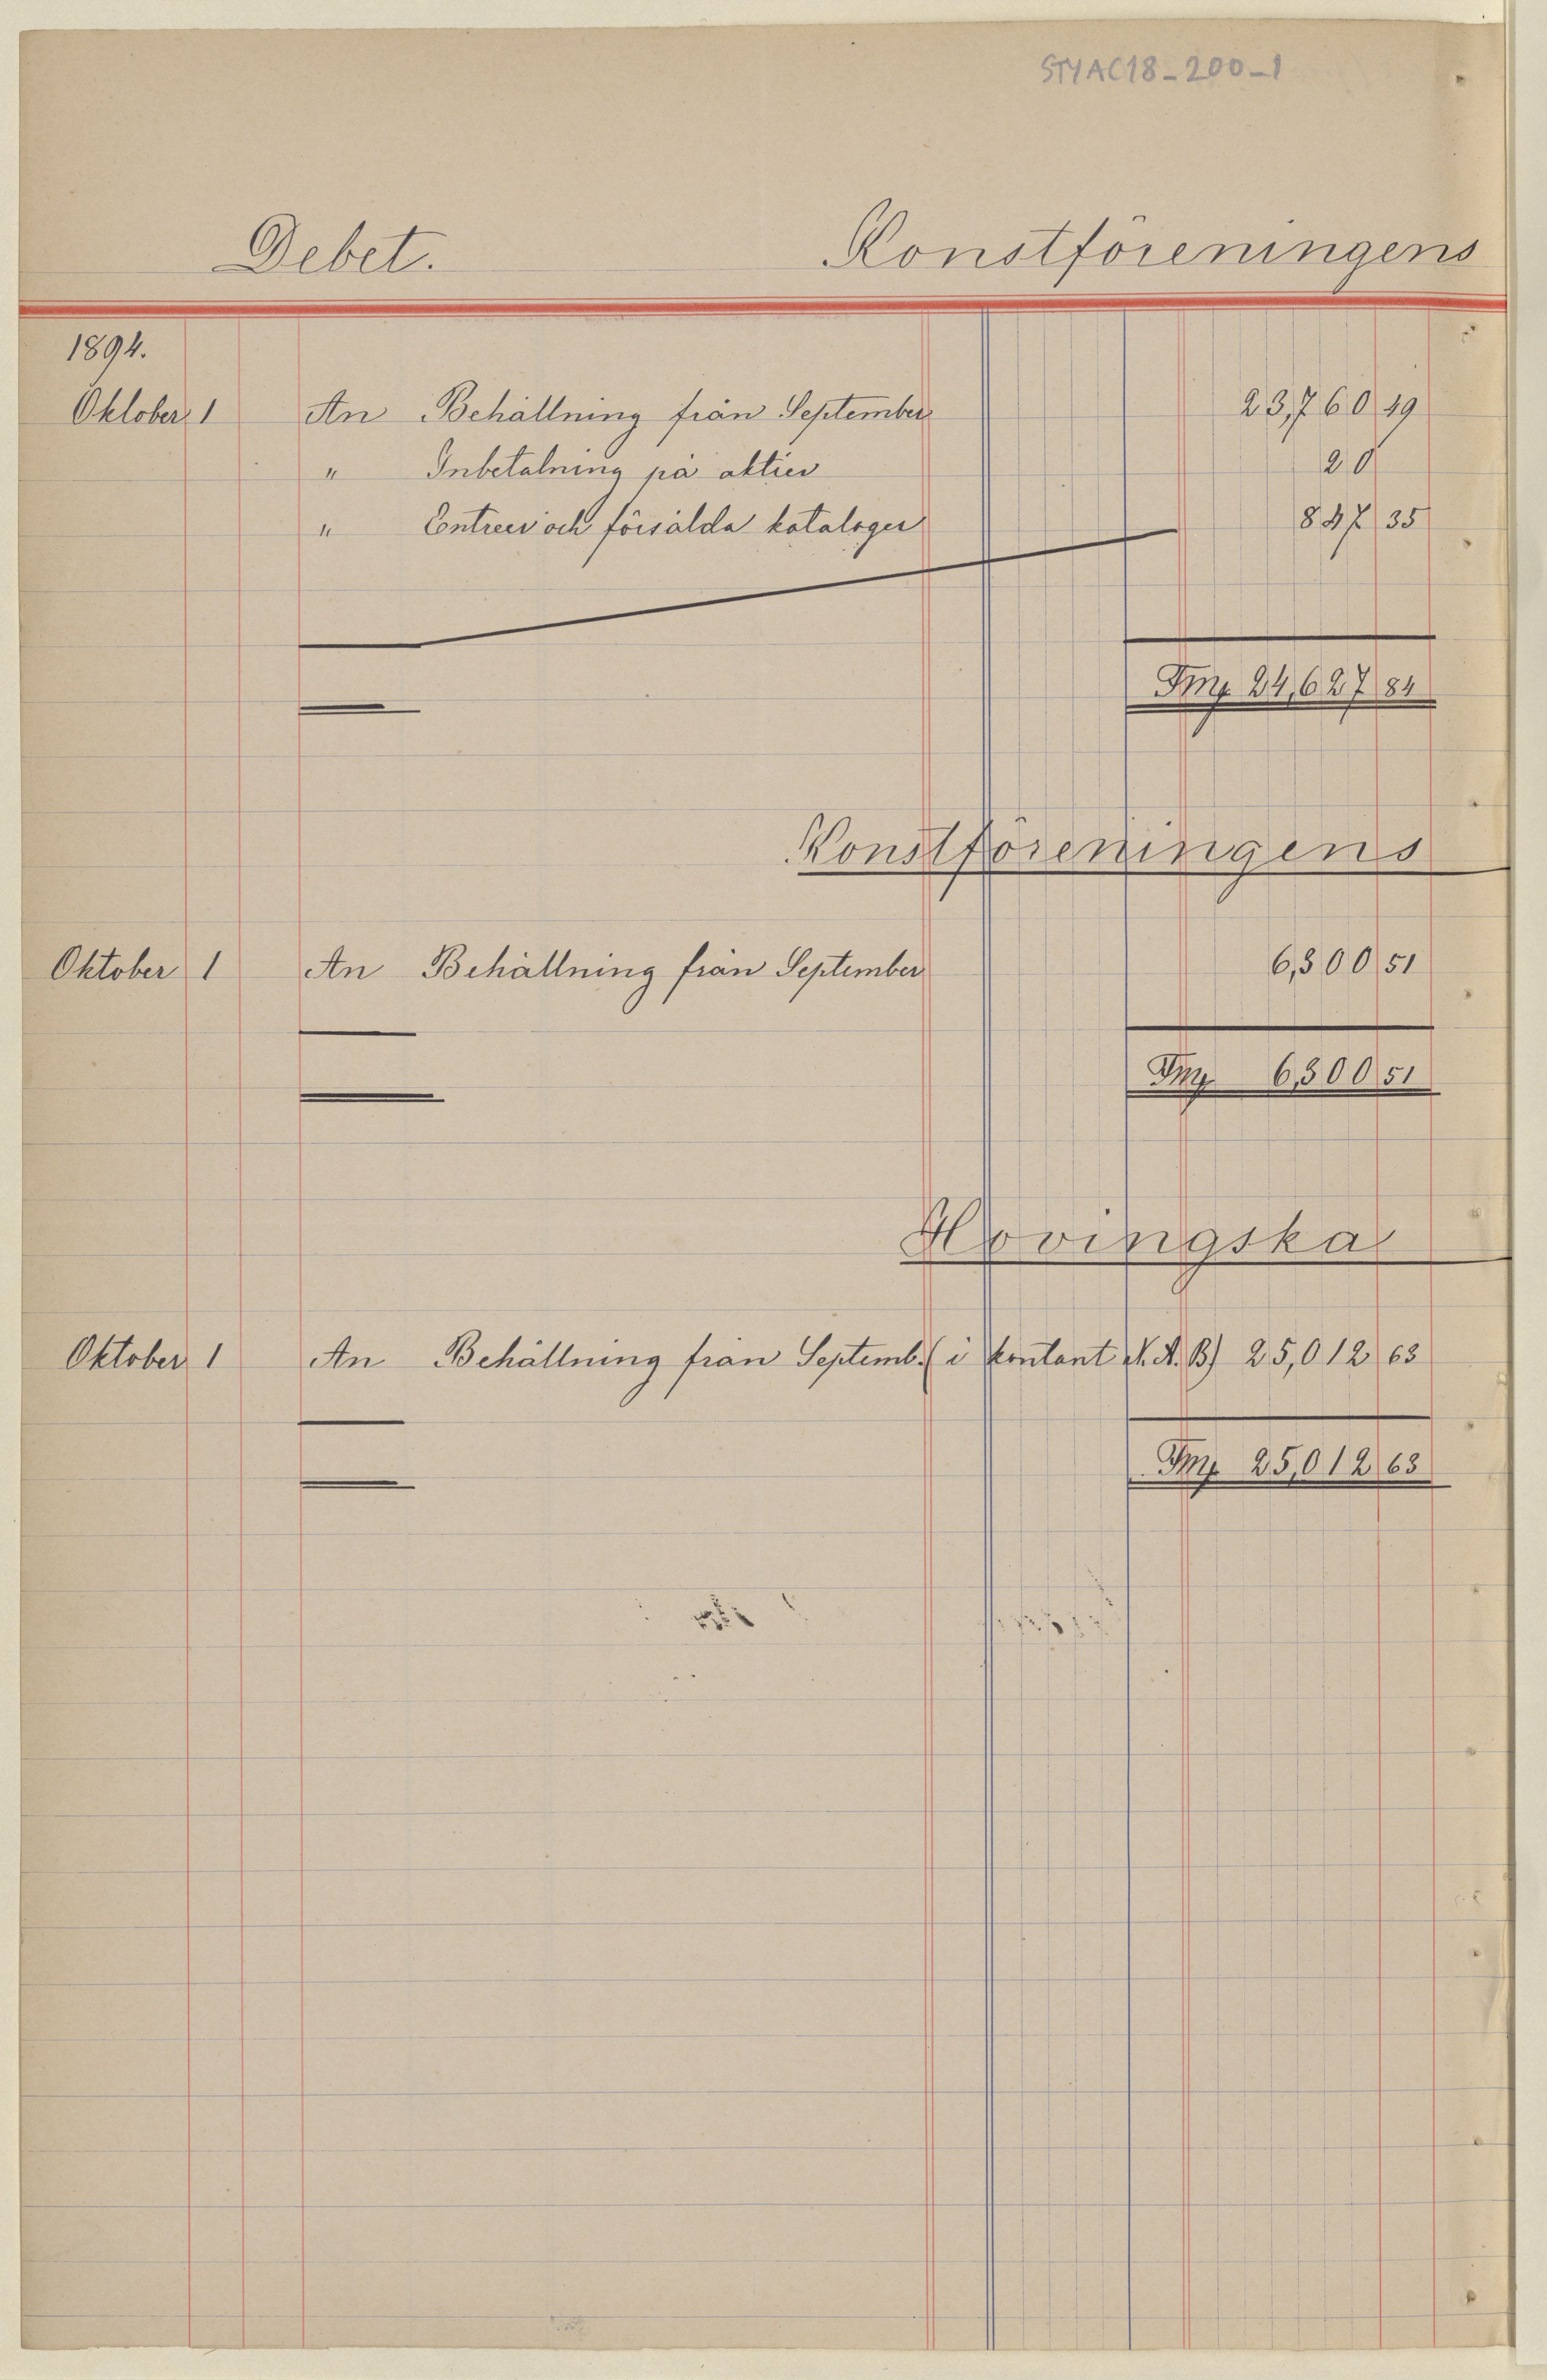 STYAC18-200-1
Debet. Konstföreningens
1894.
Oktober 1 An Behållning från September 23,760 49
" Inbetalning på aktier 20
" Entreer och försålda kataloger 847 35
Fmk 24,627 84
Konstföreningens
Oktober 1 An Behållning från September 6,300 51
Fmk 6,300 51
Hovingska
Oktober 1 An Behållning från Septemb. (i kontant N.A.B) 25,012 63
Fmk 25,012 63